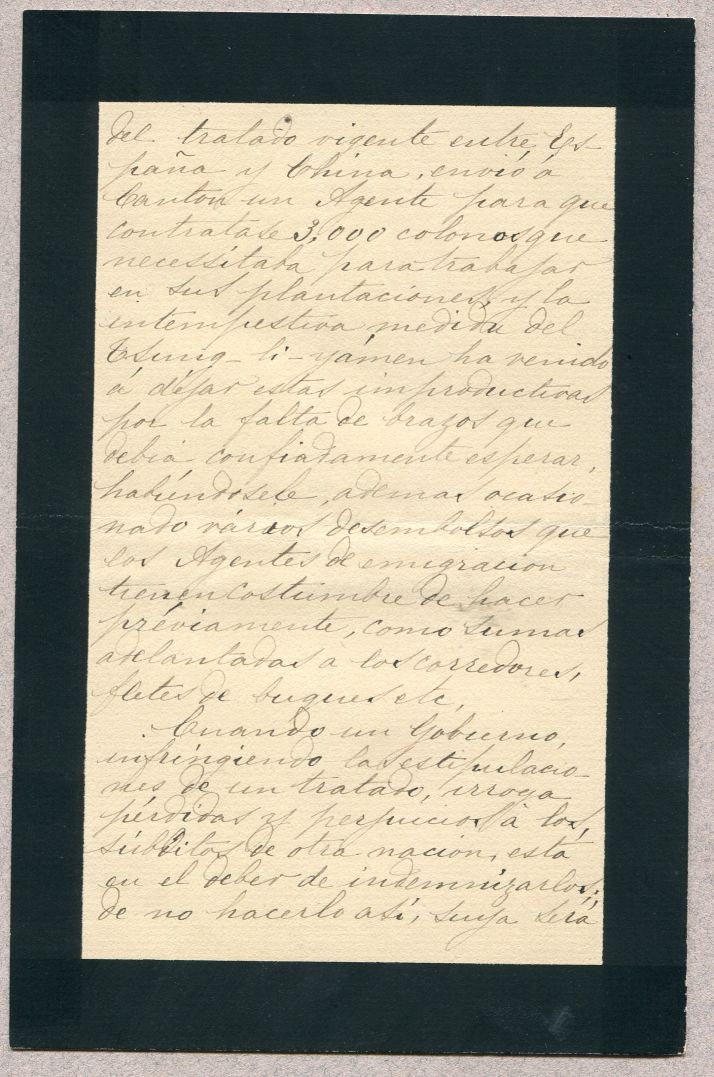 del tratado vigente entre Es-
paña y China, envió á
Canton un Agente para que
contratase 3,000 colonos que
necesitaba para trabajar
en sus plantaciones, y la
intempestiva medida del
Tsung-li-yámen ha venido
á déjar estas improductivas
por la falta de brazos que
debia confiadamente esperar,
habiéndosele, ademas ocasio-
nado várìos desembolsos que
los Agentes de emigracion
tienen costumbre de hacer
préviamente, como sumas
adelantadas a los corredores,
fletes de buques etc,
Cuando un Gobierno,
infringiendo las estipulacio-
nes de un tratado, irroga
pérdidas y perjuicios à los,
súbditos de otra nación, está
en el deber de indemnizarlos;
de no hacerlo así, suya será